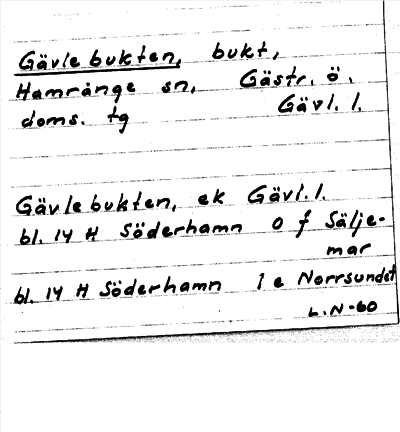 Gävlebukten, bukt,
Hamrånge sn, Gästr. ö.
doms. tg Gävl. l.
Gävlebukten, ek Gävl. l.
bl. 14 H Söderhamn 0 f Sälje-
mar
bl. 14 H Söderhamn 1 e Norrsundet
L.N-60